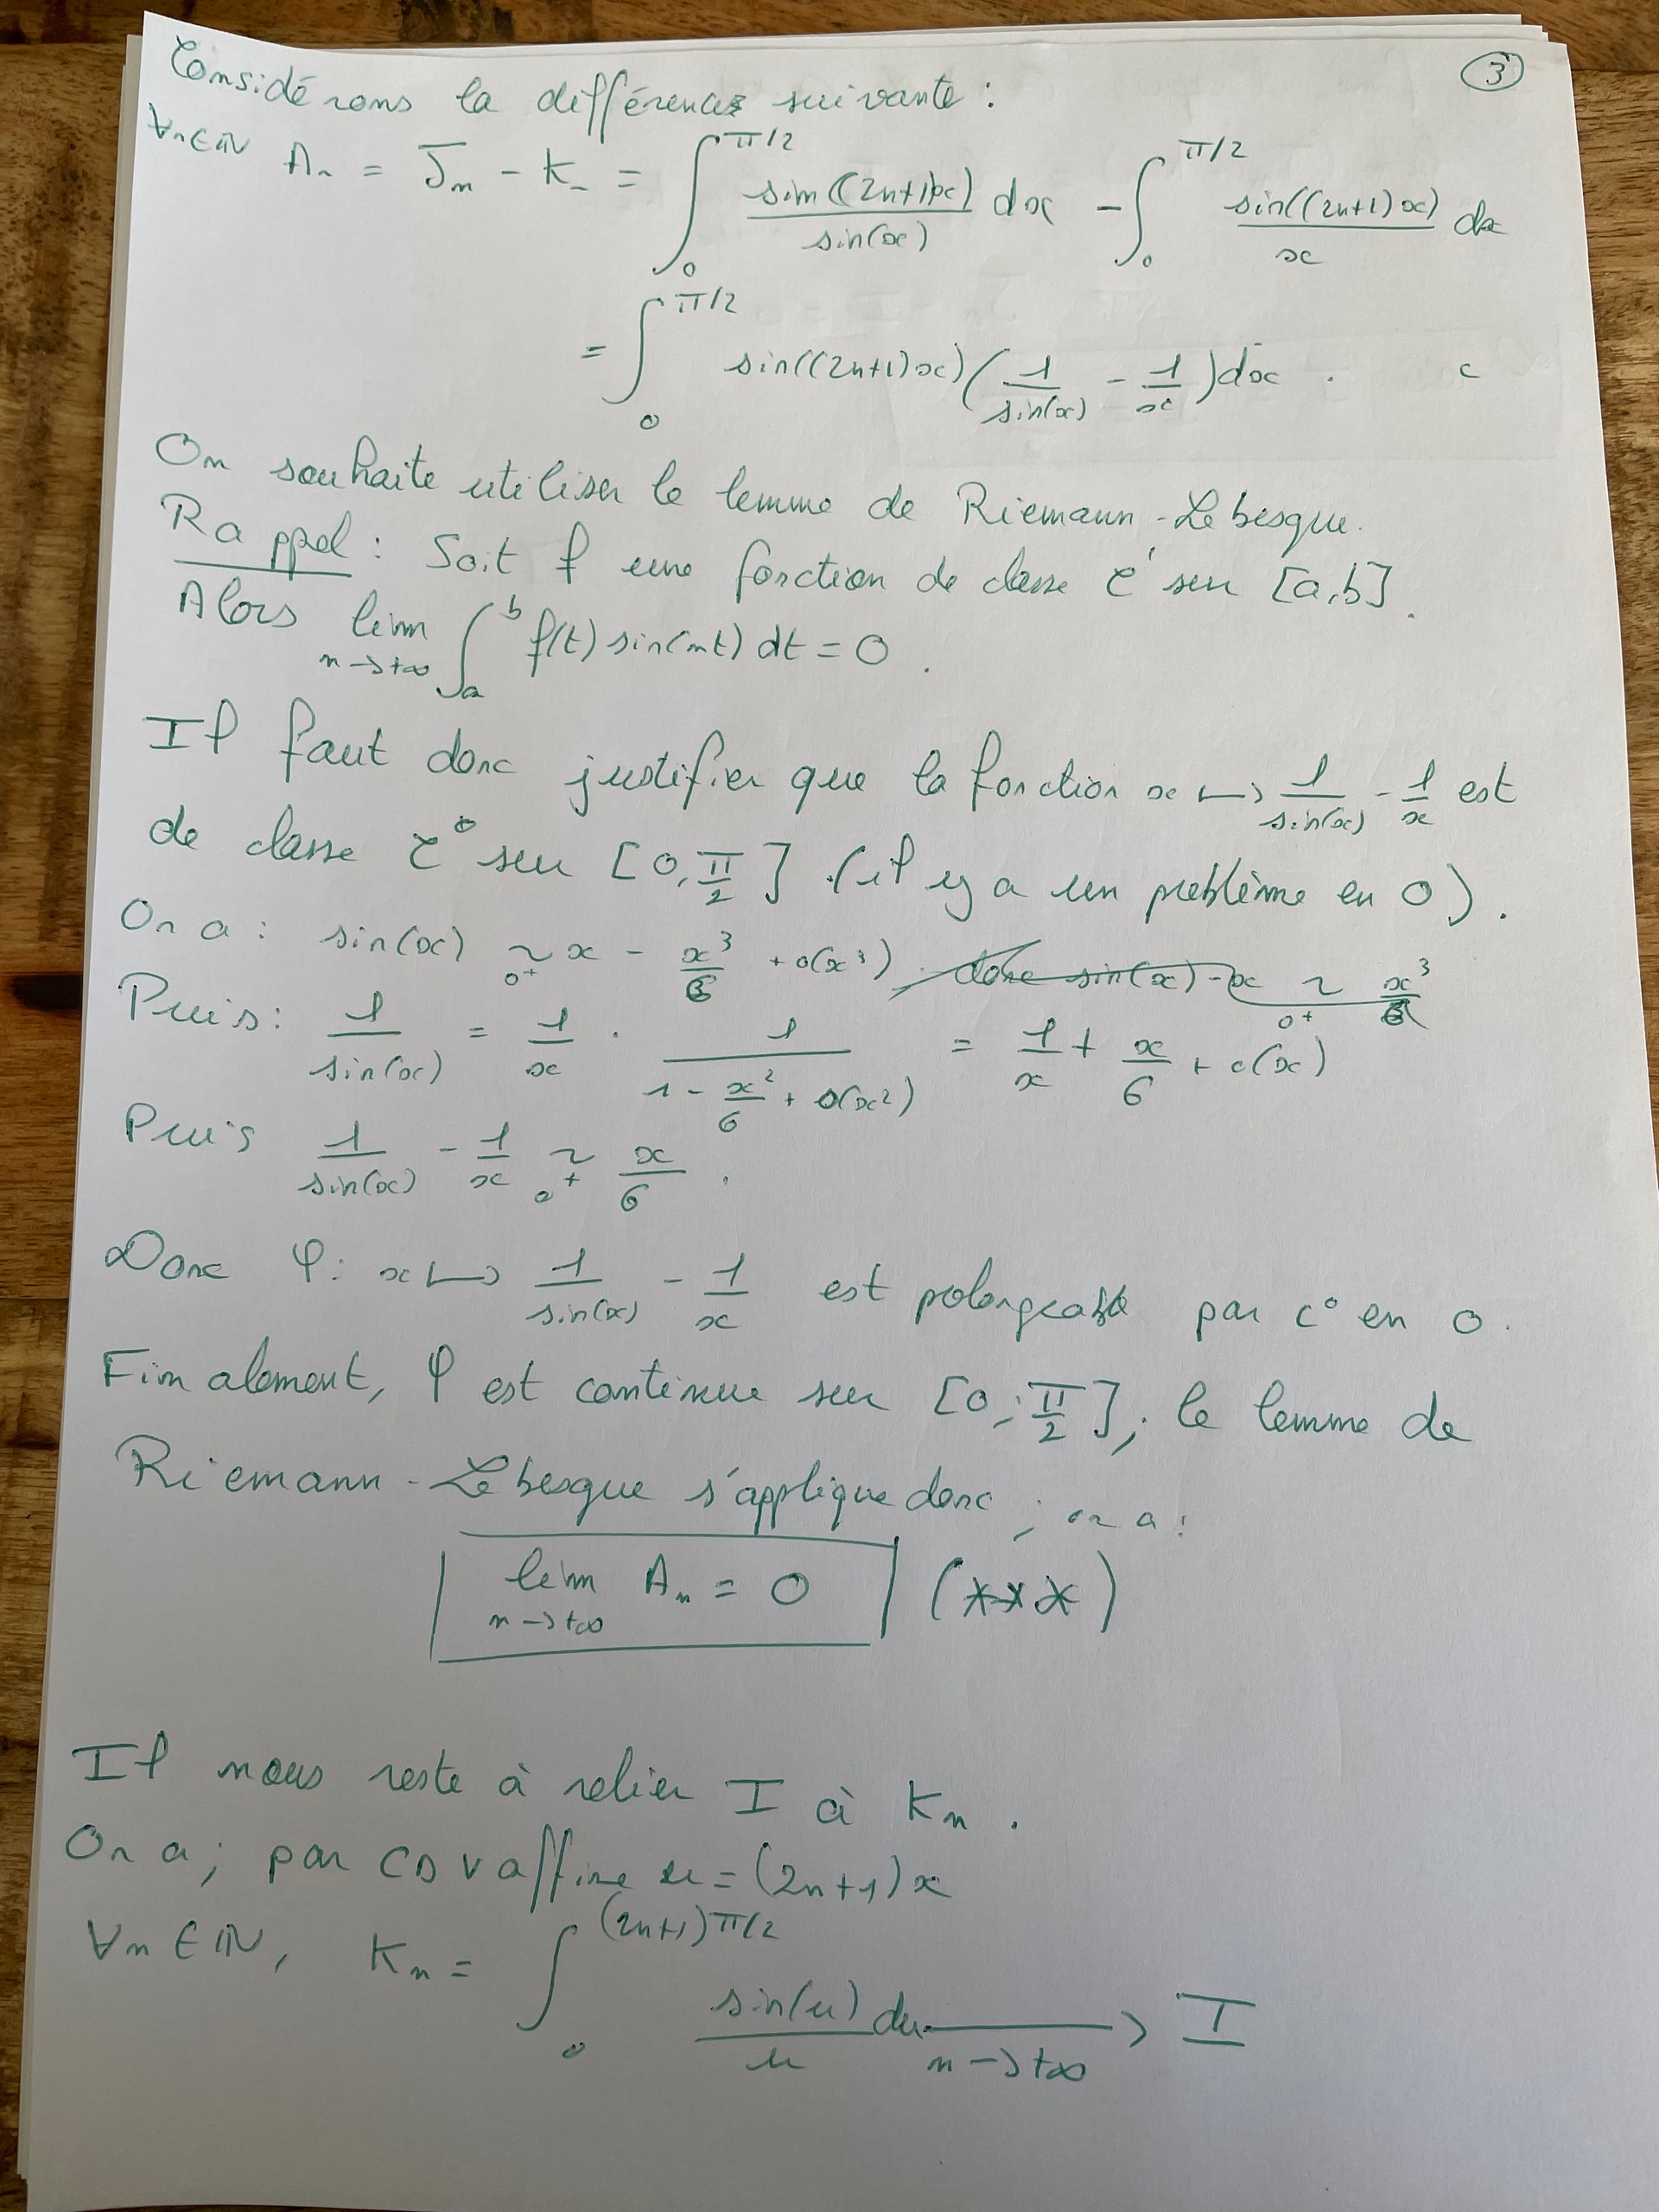 ③
Considérons la différence suivante :
∀n∈ℕ Aₙ = Jₙ - Kₙ = ∫₀^{π/2} sin((2n+1)x)/sin(x) dx - ∫₀^{π/2} sin((2n+1)x)/x dx
= ∫₀^{π/2} sin((2n+1)x) (1/sin(x) - 1/x) dx .
On souhaite utiliser le lemme de Riemann-Lebesgue.
Rappel : Soit f une fonction de classe C¹ sur [a,b].
Alors lim_{n→+∞} ∫ₐᵇ f(t) sin(nt) dt = 0 .
Il faut donc justifier que la fonction x ↦ 1/sin(x) - 1/x est
de classe C⁰ sur [0, π/2] (il y a un problème en 0).
On a : sin(x) ~_{0⁺} x - x³/6 + o(x³) . donc sin(x) - x ~_{0⁺} x³/6
Puis : 1/sin(x) = 1/x · 1/(1 - x²/6 + o(x²)) = 1/x + x/6 + o(x)
Puis 1/sin(x) - 1/x ~_{0⁺} x/6 .
Donc φ : x ↦ 1/sin(x) - 1/x est polongeable par C⁰ en 0.
Finalement, φ est continue sur [0; π/2]; le lemme de
Riemann-Lebesgue s'applique donc ; on a :
lim_{n→+∞} Aₙ = 0 (***)
Il nous reste à relier I à Kₙ .
On a ; par CDV affine u = (2n+1)x
∀n∈ℕ, Kₙ = ∫₀^{(2n+1)π/2} sin(u)/u du ⟶_{n→+∞} I